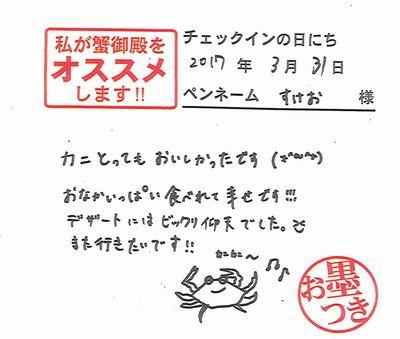 私が蟹御殿を
オススメ
します!!
チェックインの日にち
2017 年 3 月 31 日
ペンネーム すけお 様
カニとっても おいしかったです
おなかいっぱい食べれて幸せです!!!
デザートにはビックリ仰天でした。
また行きたいです!!
カニカニ〜
お墨つき